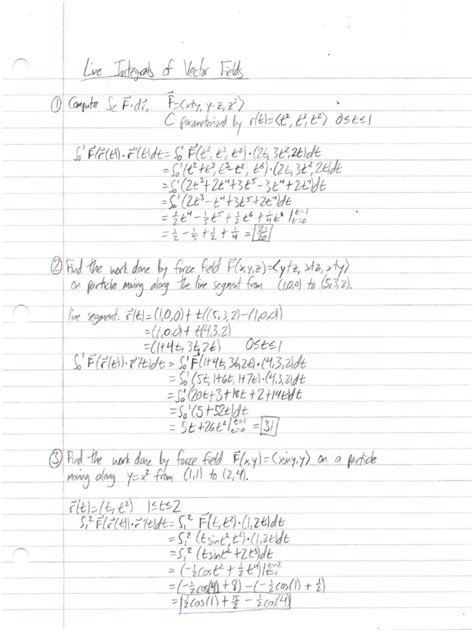 Line Integrals of Vector Fields
① Compute ∫c F⃗·dr⃗, F⃗=⟨x+y, y-z, z²⟩
C parameterized by r(t)=⟨t², t³, t²⟩ 0≤t≤1
∫₀¹ F⃗(r⃗(t))·r⃗'(t)dt = ∫₀¹ F⃗(t², t³, t²)·(2t, 3t², 2t)dt
= ∫₀¹ (t²+t³, t³-t², t⁴)·(2t, 3t², 2t)dt
= ∫₀¹ (2t³+2t⁴+3t⁵-3t⁴+2t⁵)dt
= ∫₀¹ (2t³-t⁴+3t⁵+2t⁵)dt
= ½t⁴-⅕t⁵+½t⁶+ t⁶|
= ½-⅕+½+ =
② Find the work done by force field F⃗(x,y,z)=⟨y+z, x+z, x+y⟩
on particle moving along the line segment from (1,0,0) to (5,3,2).
line segment: r⃗(t)=(1,0,0)+t((5,3,2)-(1,0,0))
=(1,0,0)+t(4,3,2)
=(1+4t, 3t, 2t) 0≤t≤1
∫₀¹ F⃗(r⃗(t))·r⃗'(t)dt = ∫₀¹ F⃗(1+4t, 3t, 2t)·(4,3,2)dt
= ∫₀¹ (5t, 1+6t, 1+7t)·(4,3,2)dt
= ∫₀¹ (20t+3+18t+2+14t)dt
= ∫₀¹ (5+52t)dt
= 5t+26t²|t=0 t=1 = 31
③ Find the work done by force field F⃗(x,y)=⟨xsiny, y⟩ on a particle
moving along y=x² from (1,1) to (2,4).
r⃗(t)=(t, t²) 1≤t≤2
∫₁² F⃗(r⃗(t))·r⃗'(t)dt = ∫₁² F⃗(t, t²)·(1,2t)dt
= ∫₁² (tsint², t²)·(1,2t)dt
= ∫₁² (tsint²+2t³)dt
= (-½cost²+½t⁴)|t=1 t=2
= (-½cos(4)+8)-(-½cos(1)+½)
= ½cos(1)+15/2-½cos(4)